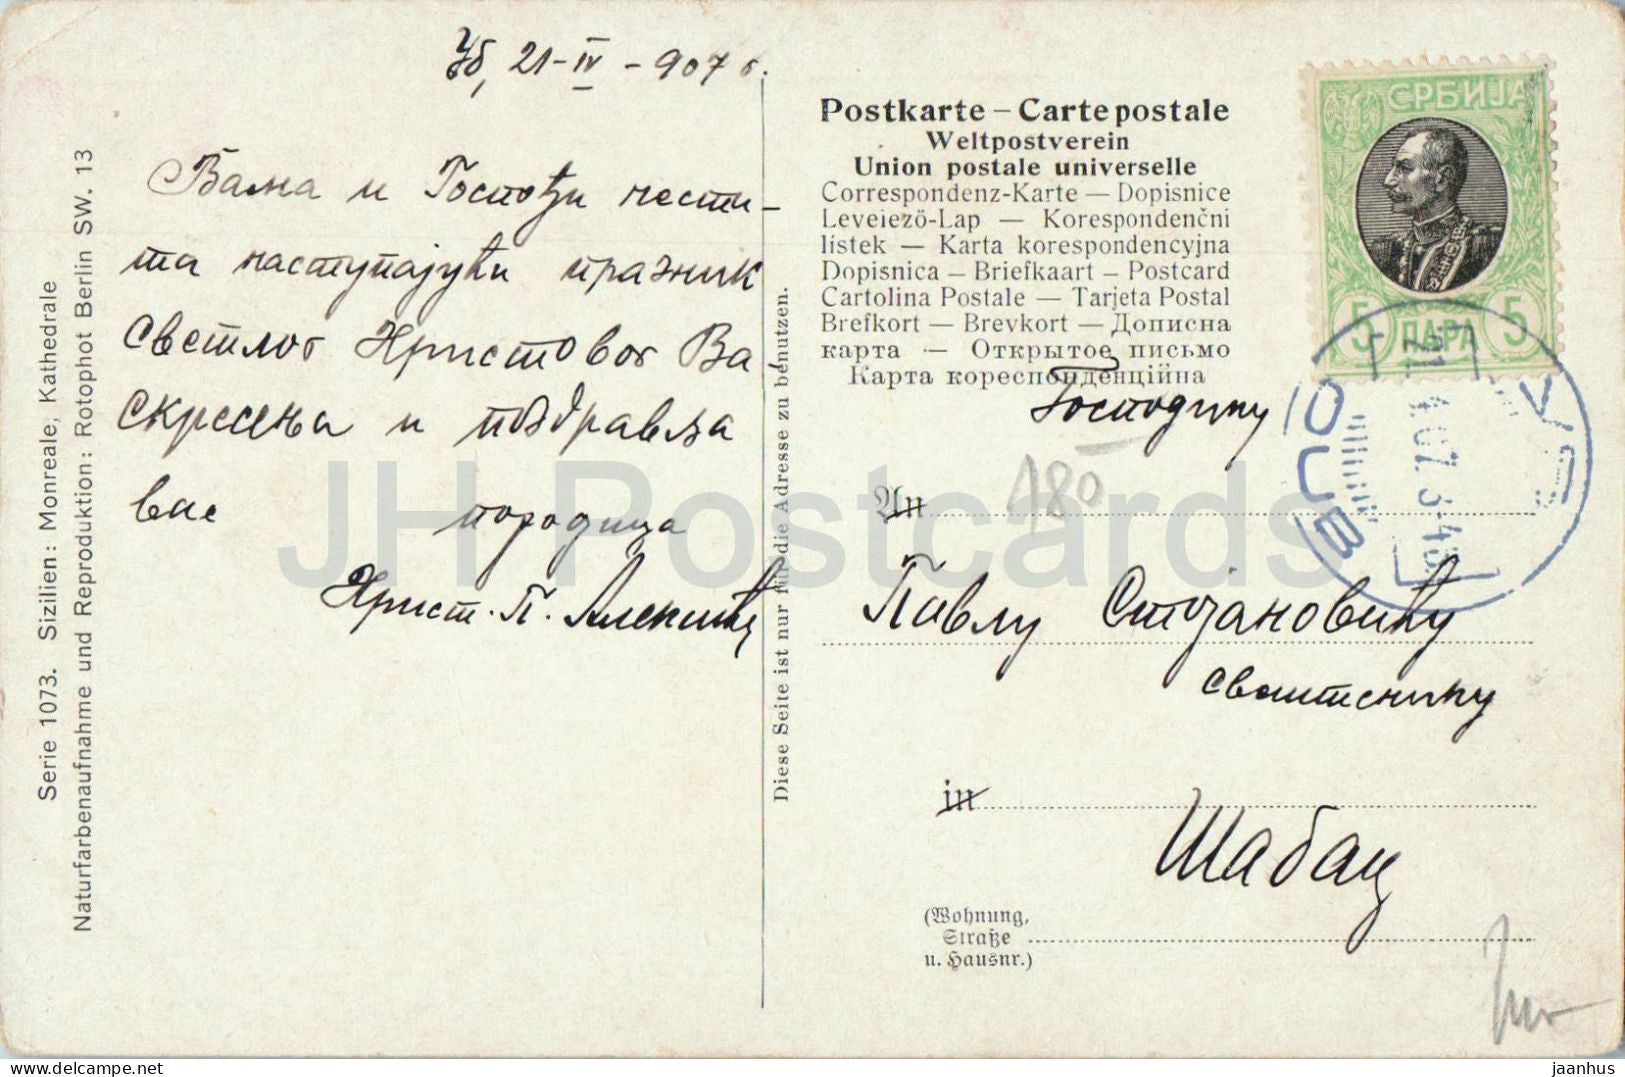 Уб, 21-IV-907 г.
Вама и Госпођи чести-
та наступајући празник
светлог Христовог Ва-
скрсења и поздравља
вас породица
Христ. П. Алексић
Serie 1073. Sizilien: Monreale, Kathedrale
Naturfarbenaufnahme und Reproduktion: Rotophot Berlin SW. 13
Diese Seite ist nur für die Adresse zu benutzen.
Postkarte – Carte postale
Weltpostverein
Union postale universelle
Correspondenz-Karte — Dopisnice
Leveiezö-Lap — Korespondenčni
lístek — Karta korespondencyjna
Dopisnica – Briefkaart – Postcard
Cartolina Postale — Tarjeta Postal
Brefkort — Brevkort — Дописна
карта — Открытое письмо
Карта кореспонденційна
СРБИЈА
5 ПАРА 5
УБ
OUB
Господину
180
An
Павлу Стојановићу
свештенику
in
Шабац
(Wohnung,
Straße
u. Hausnr.)
JH Postcards
delcampe.net
jaanhus